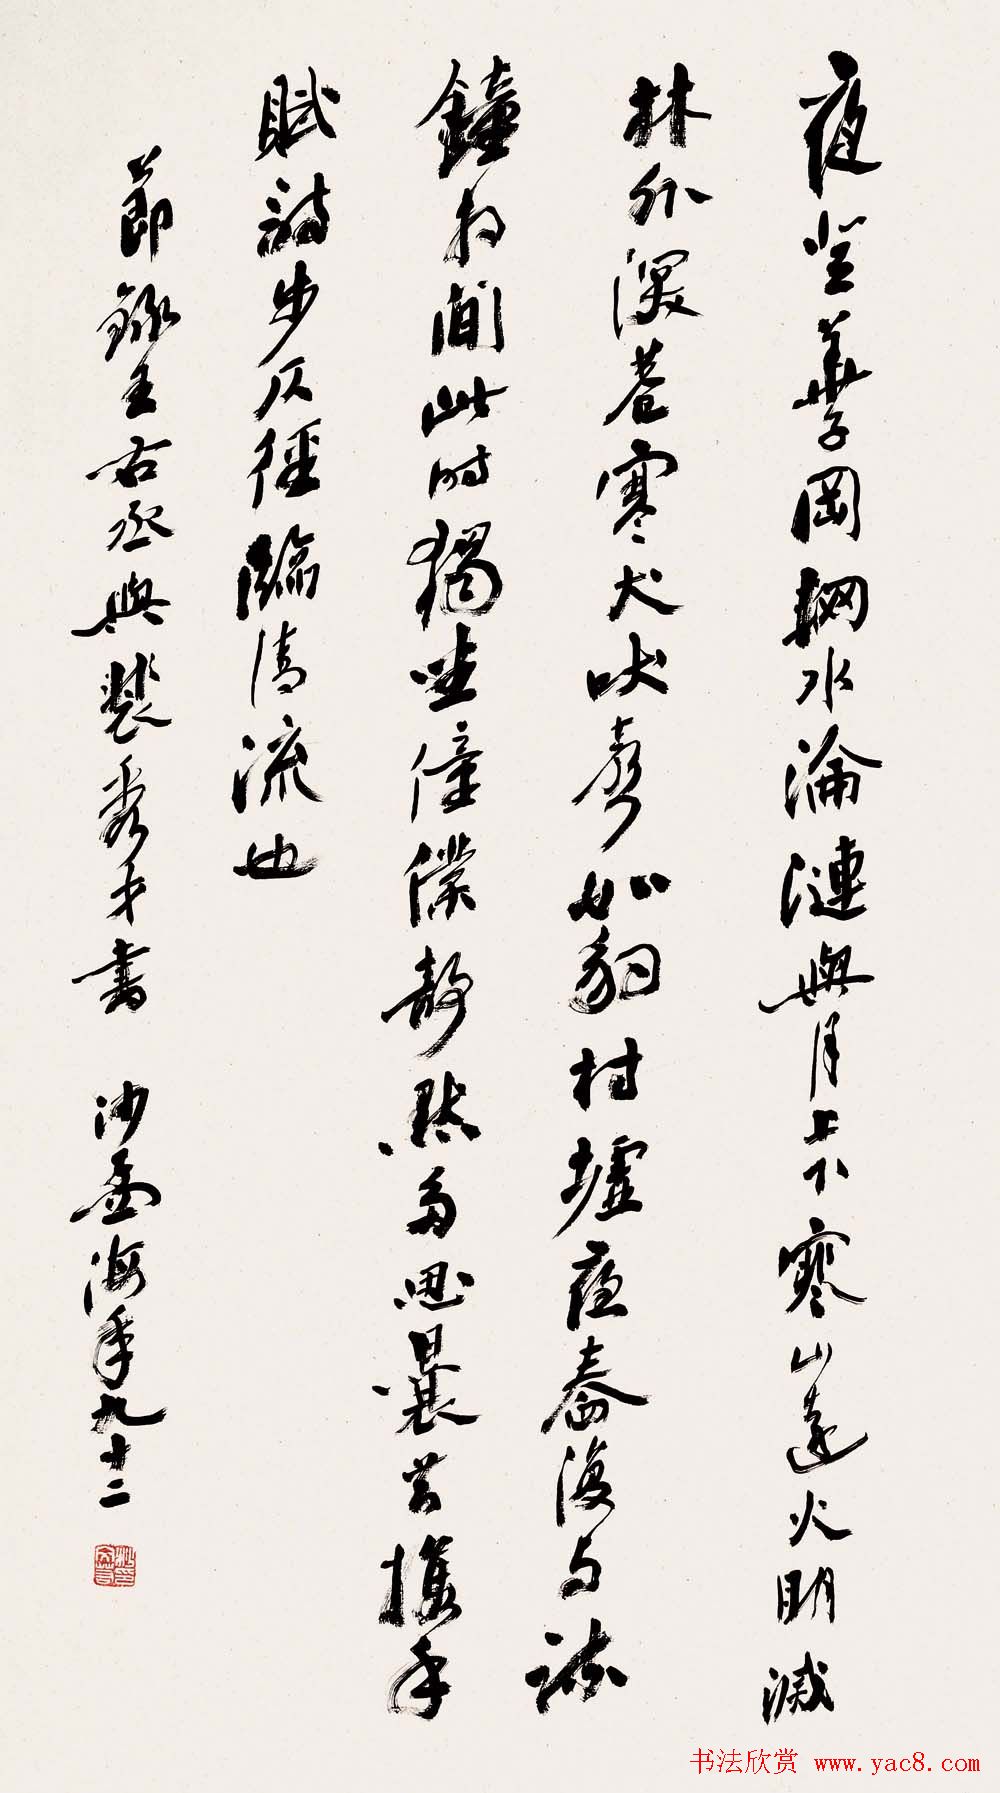 夜登華子岡輞水淪漣與月上下寒山遠火明滅
林外深巷寒犬吠聲如豹村墟夜舂復與疏
鐘相間此時獨坐僮僕靜默多思曩昔攜手
賦詩步仄徑臨清流也
節錄王右丞與裴秀才書 沙孟海年九十二
书法欣赏 www.yac8.com